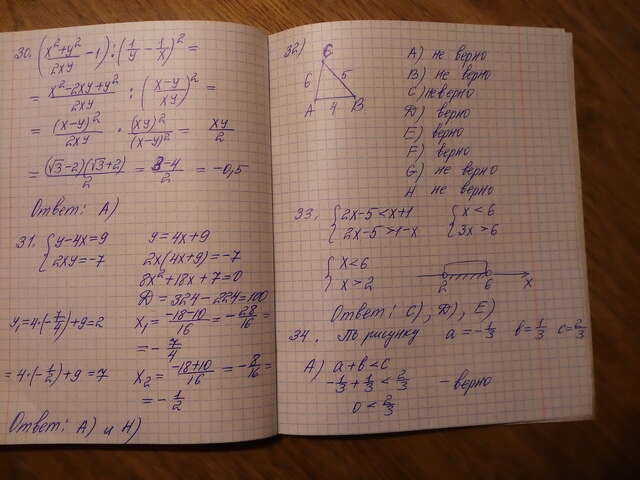 30. (x²+y²/2xy - 1) : (1/y - 1/x)² =
= x²-2xy+y²/2xy : (x-y/xy)² =
= (x-y)²/2xy · (xy)²/(x-y)² = xy/2
= (√3-2)(√3+2)/2 = 3-4/2 = -0,5
Ответ: А)
31. { y-4x=9 y=4x+9
2xy=-7 2x(4x+9)=-7
8x²+18x+7=0
D = 324-224=100
y₁=4·(-7/4)+9=2 x₁= -18-10/16 = -28/16 =
= -7/4
=4·(-1/2)+9=7 x₂= -18+10/16 = -8/16 =
= -1/2
Ответ: А) и H)
32)
C
6 5
A 4 B
А) не верно
B) не верно
C) неверно
D) верно
E) верно
F) верно
G) не верно
H не верно
33. { 2x-5<x+1 { x<6
2x-5>1-x 3x>6
{ x<6
x>2
2 6 x
Ответ: C), D), E)
34. По рисунку a=-1/3 b=1/3 c=2/3
А) a+b<c
-1/3+1/3<2/3 - верно
0<2/3